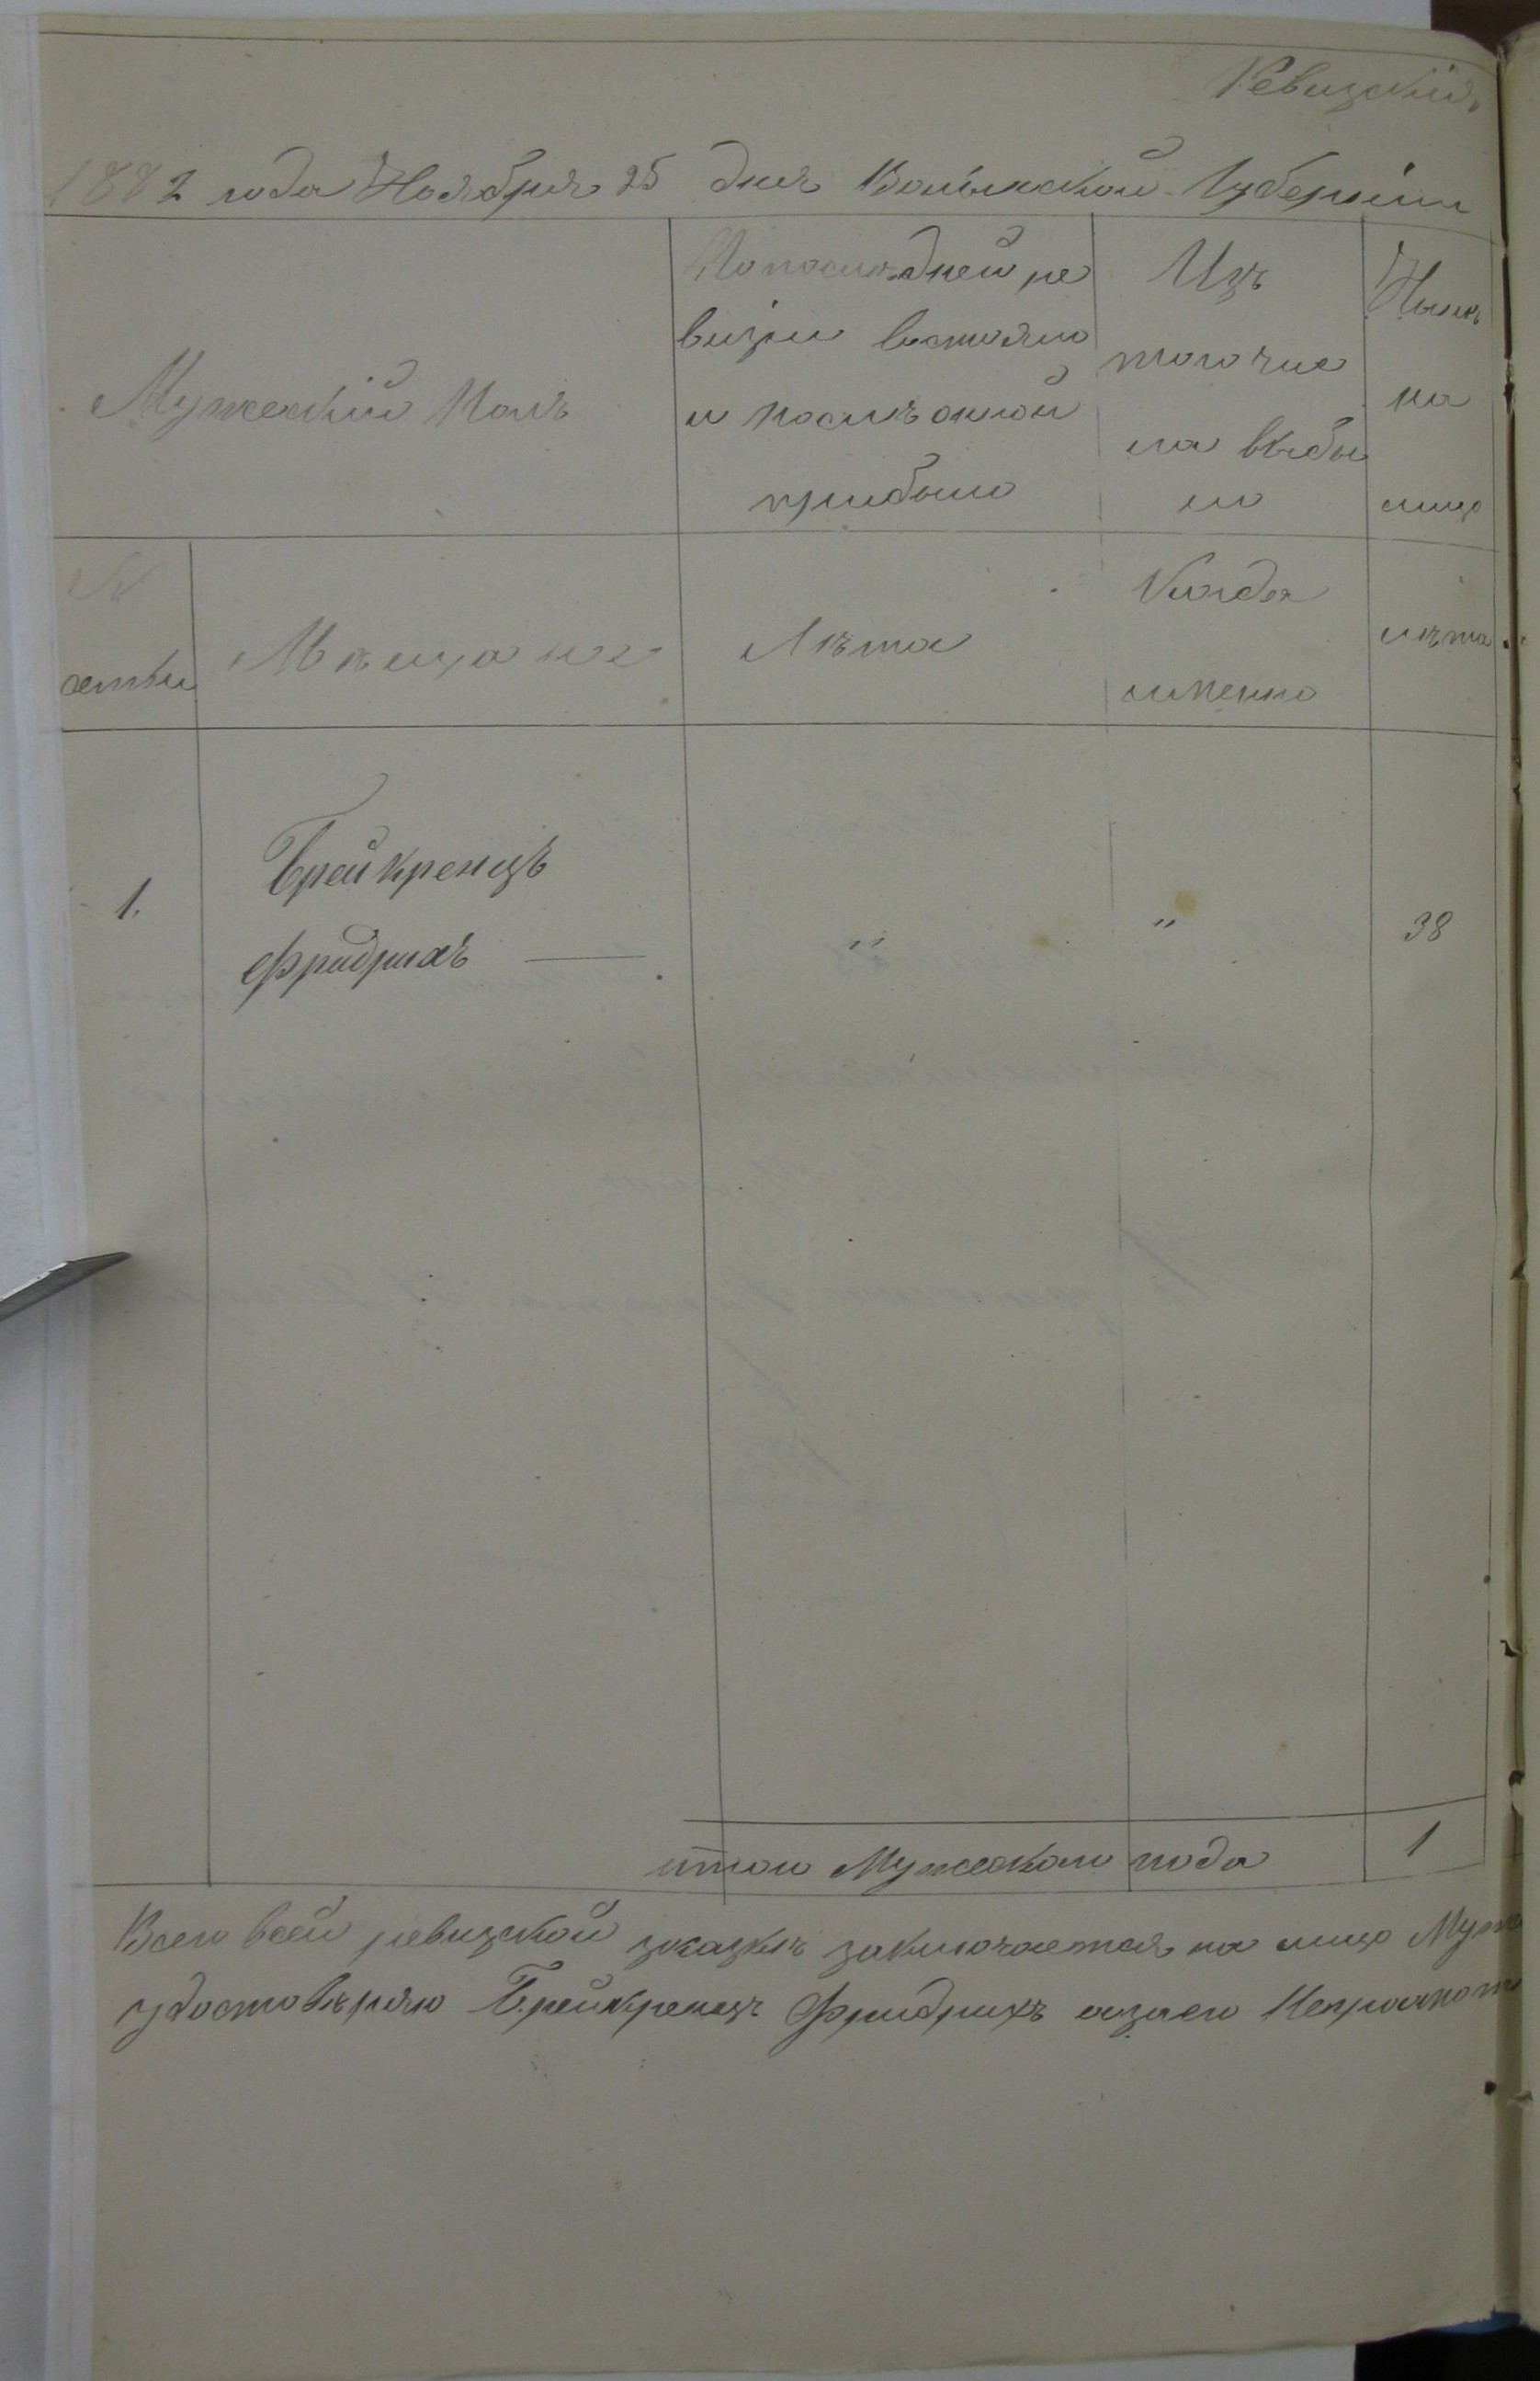 Ревизскій
1882 года Ноября 25 дня Волынской Губерніи
Мужескій Полъ
По последней ре
визіи состояло
и после оной
прибыло
Изъ
того чис
ла выбы
ло
Нынѣ
на
лицо
№
семьи
Мѣщане
Лѣта
Когда
именно
лѣта
1.
Брейкренцъ
Фридрихъ —
"
"
38
итого Мужескаго пола
1
Всего всей ревизской сказкѣ заключается на лицо Муже
удостовѣряю Брейкренцъ Фридрихъ а за его Неграмот